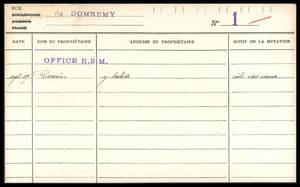 RUE
BOULEVARD
AVENUE
PLACE
de DOMREMY
N° 1
DATE NOM DU PROPRIÉTAIRE ADRESSE DU PROPRIÉTAIRE MOTIF DE LA MUTATION
OFFICE H.B.M.
y habite